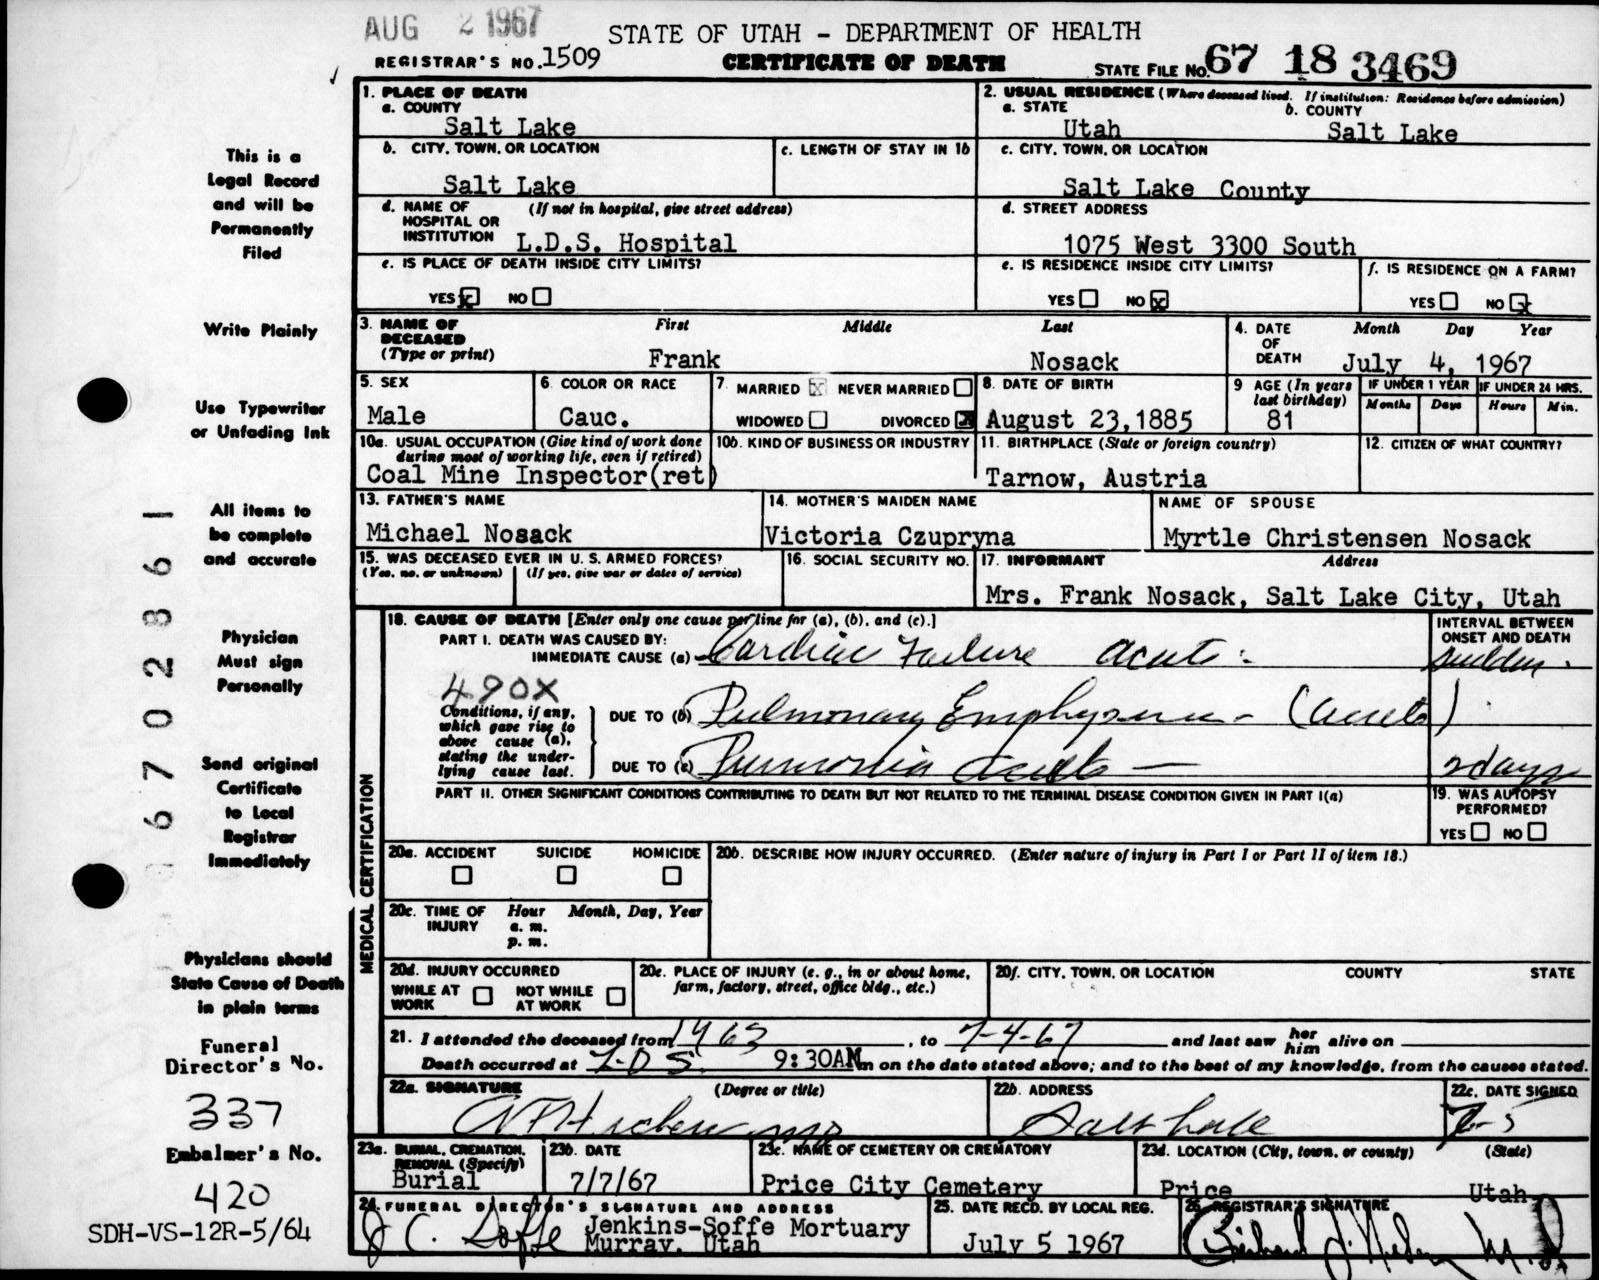 AUG 2 1967
STATE OF UTAH - DEPARTMENT OF HEALTH
REGISTRAR'S NO. 1509
CERTIFICATE OF DEATH
STATE FILE NO. 67 18 3469
This is a
Legal Record
and will be
Permanently
Filed
Write Plainly
Use Typewriter
or Unfading Ink
All items to
be complete
and accurate
Physician
Must sign
Personally
Send original
Certificate
to Local
Registrar
Immediately
Physicians should
State Cause of Death
in plain terms
Funeral
Director's No.
337
Embalmer's No.
420
SDH-VS-12R-5/64
6702861
1. PLACE OF DEATH
a. COUNTY
Salt Lake
2. USUAL RESIDENCE (Where deceased lived. If institution: Residence before admission)
a. STATE b. COUNTY
Utah Salt Lake
b. CITY, TOWN, OR LOCATION
Salt Lake
c. LENGTH OF STAY IN 1b
c. CITY, TOWN, OR LOCATION
Salt Lake County
d. NAME OF HOSPITAL OR INSTITUTION (If not in hospital, give street address)
L.D.S. Hospital
d. STREET ADDRESS
1075 West 3300 South
e. IS PLACE OF DEATH INSIDE CITY LIMITS?
YES x NO
e. IS RESIDENCE INSIDE CITY LIMITS?
YES NO x
f. IS RESIDENCE ON A FARM?
YES NO x
3. NAME OF DECEASED (Type or print) First Middle Last
Frank Nosack
4. DATE OF DEATH Month Day Year
July 4, 1967
5. SEX
Male
6. COLOR OR RACE
Cauc.
7. MARRIED x NEVER MARRIED
WIDOWED DIVORCED x
8. DATE OF BIRTH
August 23,1885
9 AGE (In years last birthday)
81
IF UNDER 1 YEAR IF UNDER 24 HRS.
Months Days Hours Min.
10a. USUAL OCCUPATION (Give kind of work done during most of working life, even if retired)
Coal Mine Inspector(ret)
10b. KIND OF BUSINESS OR INDUSTRY
11. BIRTHPLACE (State or foreign country)
Tarnow, Austria
12. CITIZEN OF WHAT COUNTRY?
13. FATHER'S NAME
Michael Nosack
14. MOTHER'S MAIDEN NAME
Victoria Czupryna
NAME OF SPOUSE
Myrtle Christensen Nosack
15. WAS DECEASED EVER IN U. S. ARMED FORCES?
(Yes, no, or unknown) (If yes, give war or dates of service)
16. SOCIAL SECURITY NO.
17. INFORMANT Address
Mrs. Frank Nosack, Salt Lake City, Utah
MEDICAL CERTIFICATION
18. CAUSE OF DEATH [Enter only one cause per line for (a), (b), and (c).]
PART I. DEATH WAS CAUSED BY:
IMMEDIATE CAUSE (a) Cardiac Failure acute
INTERVAL BETWEEN ONSET AND DEATH
Sudden
490X
Conditions, if any, which gave rise to above cause (a), stating the underlying cause last.
DUE TO (b) Pulmonary Emphysema - (acute)
DUE TO (c) Pneumonia acute — 2 days
PART II. OTHER SIGNIFICANT CONDITIONS CONTRIBUTING TO DEATH BUT NOT RELATED TO THE TERMINAL DISEASE CONDITION GIVEN IN PART I(a)
19. WAS AUTOPSY PERFORMED?
YES NO
20a. ACCIDENT SUICIDE HOMICIDE
20b. DESCRIBE HOW INJURY OCCURRED. (Enter nature of injury in Part I or Part II of item 18.)
20c. TIME OF INJURY Hour Month, Day, Year
a. m.
p. m.
20d. INJURY OCCURRED
WHILE AT WORK NOT WHILE AT WORK
20e. PLACE OF INJURY (e. g., in or about home, farm, factory, street, office bldg., etc.)
20f. CITY, TOWN, OR LOCATION COUNTY STATE
21. I attended the deceased from 1963, to 7-4-67 and last saw her him alive on
Death occurred at L-D S. 9:30AM m on the date stated above; and to the best of my knowledge, from the causes stated.
22a. SIGNATURE (Degree or title)
MD
22b. ADDRESS
Salt Lake
22c. DATE SIGNED
7-5
23a. BURIAL, CREMATION, REMOVAL (Specify)
Burial
23b. DATE
7/7/67
23c. NAME OF CEMETERY OR CREMATORY
Price City Cemetery
23d. LOCATION (City, town, or county) (State)
Price Utah
24. FUNERAL DIRECTOR'S SIGNATURE AND ADDRESS
J C. Soffe Jenkins-Soffe Mortuary
Murray, Utah
25. DATE RECD. BY LOCAL REG.
July 5 1967
26. REGISTRAR'S SIGNATURE